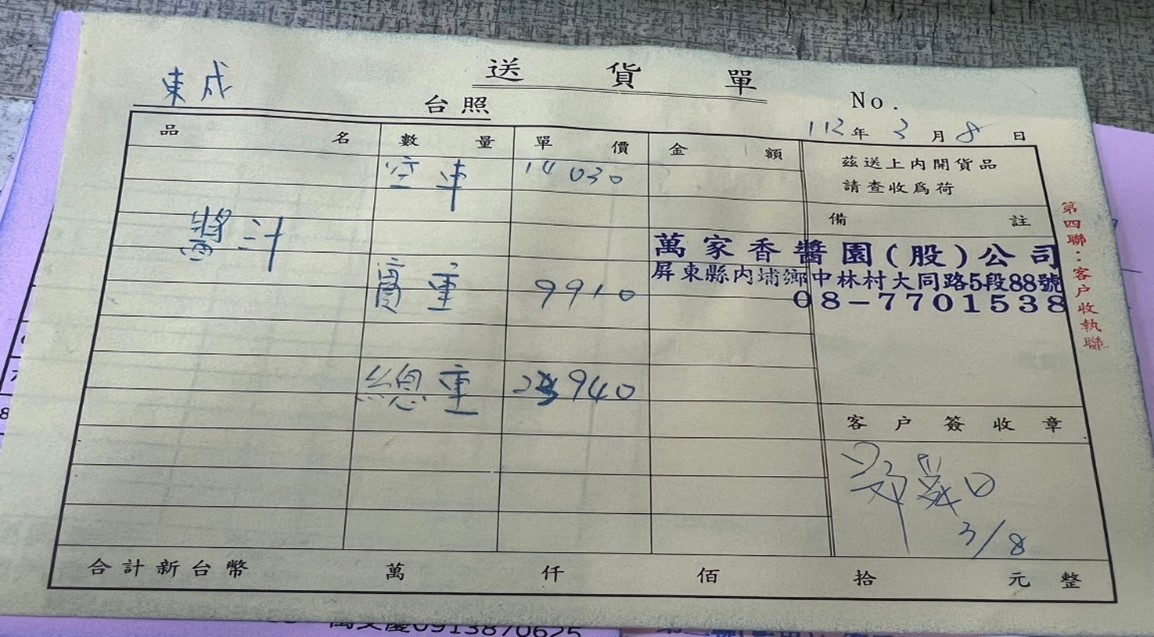 送貨單
東成 台照
No.
112年3月8日
品名 數量 單價 金額
茲送上內開貨品
請查收為荷
空車 14030
備註
醬汁
萬家香醬園(股)公司
屏東縣內埔鄉中林村大同路5段88號
08-7701538
實重 9910
總重 23940
第四聯：客戶收執聯
客戶簽收章
3/8
合計新台幣 萬 仟 佰 拾 元整
0913870625